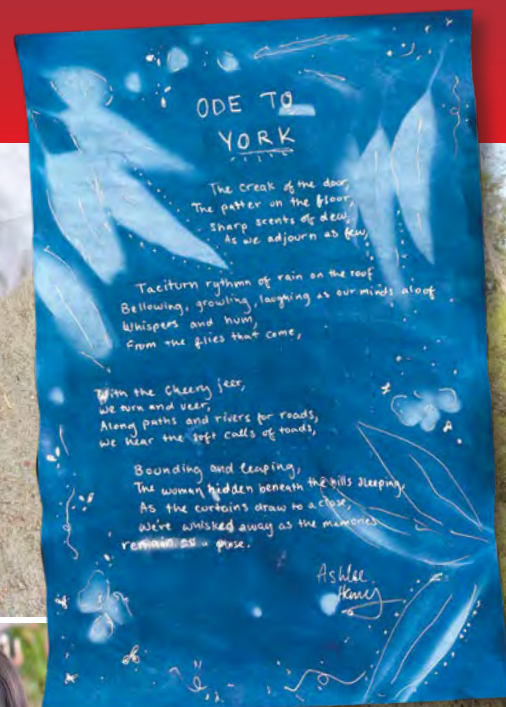 ODE TO
YORK
The creak of the door,
The patter on the floor,
Sharp scents of dew,
As we adjourn as few,
Taciturn rythmn of rain on the roof
Bellowing, growling, laughing as our minds aloof
Whispers and hum,
From the flies that come,
With the cheery jeer,
We turn and veer,
Along paths and rivers for roads,
We hear the soft calls of toads,
Bounding and leaping,
The woman hidden beneath the hills sleeping,
As the curtains draw to a close,
We're whisked away as the memories
remain as a
Ashlee